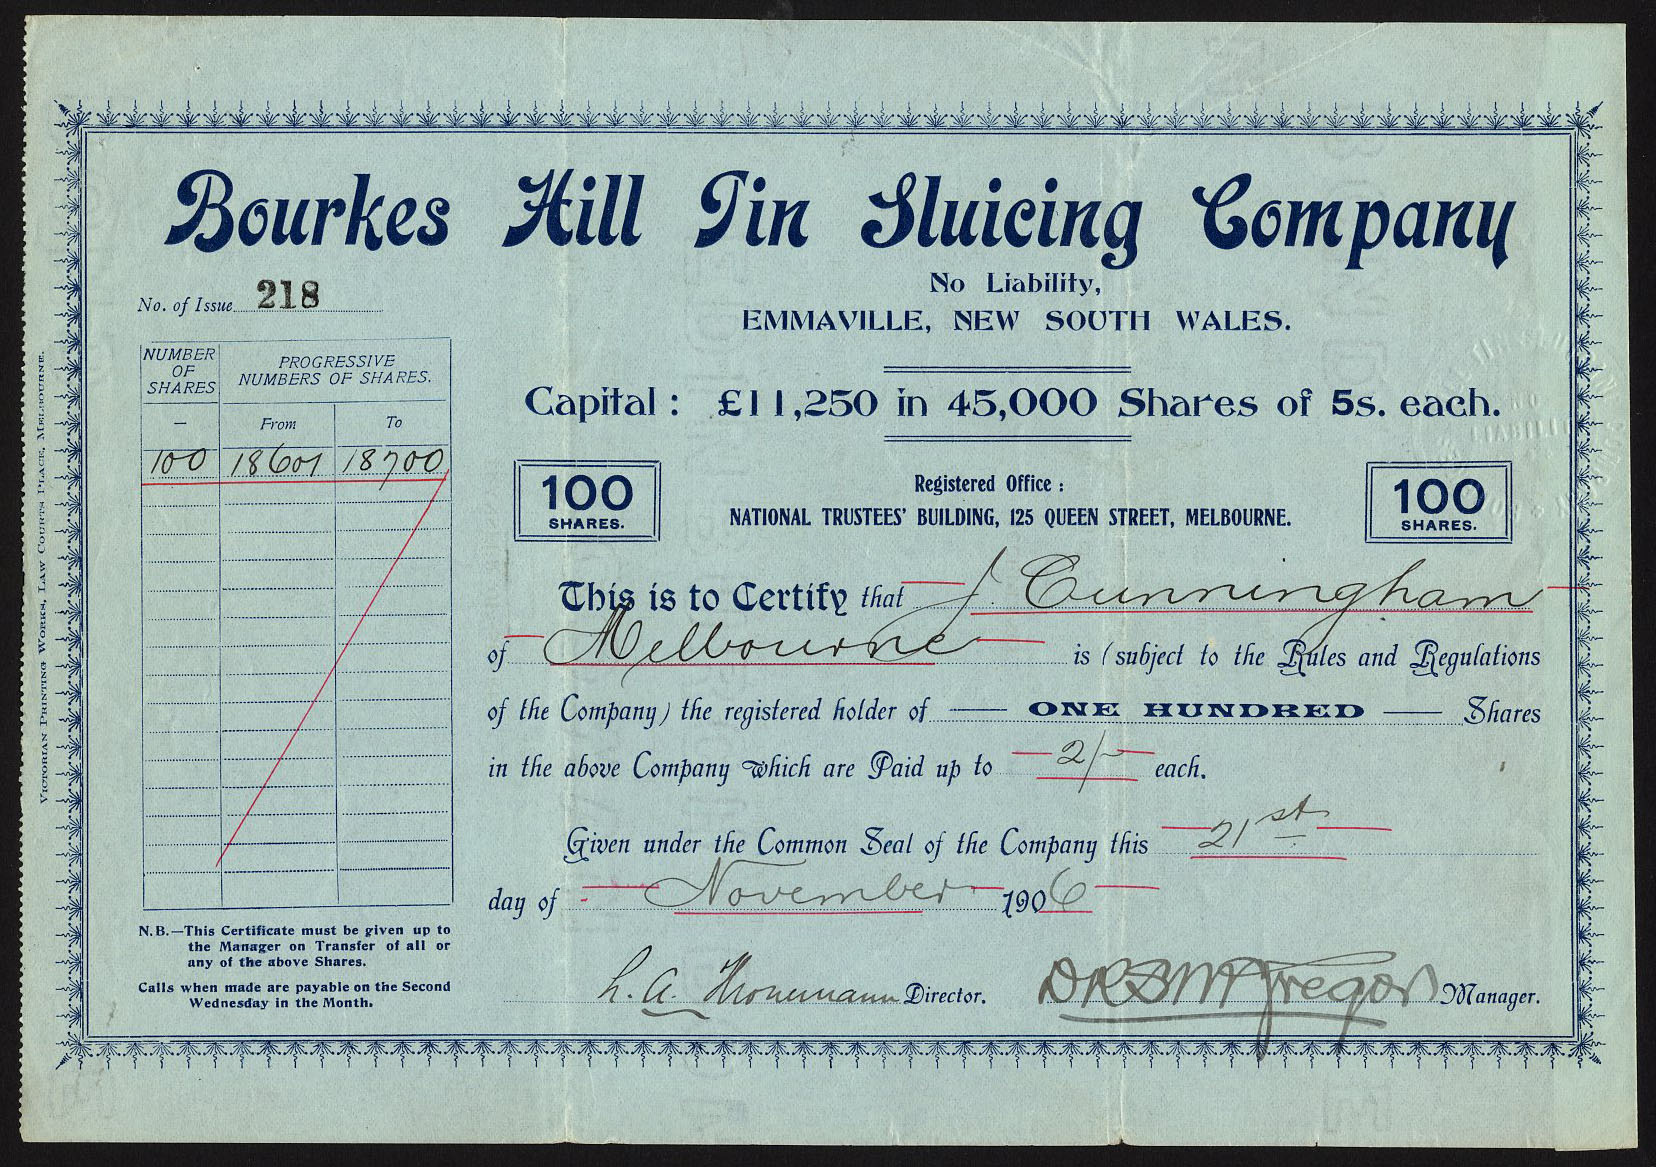 Bourkes Hill Tin Sluicing Company
No Liability,
EMMAVILLE, NEW SOUTH WALES.
No. of Issue 218
Capital: £11,250 in 45,000 Shares of 5s. each.
NUMBER OF SHARES
PROGRESSIVE NUMBERS OF SHARES.
— From To
100 18601 18700
100 SHARES.
Registered Office:
NATIONAL TRUSTEES' BUILDING, 125 QUEEN STREET, MELBOURNE.
100 SHARES.
This is to Certify that J. Cunningham
of Melbourne is (subject to the Rules and Regulations
of the Company) the registered holder of — ONE HUNDRED — Shares
in the above Company which are Paid up to — 2/- — each.
Given under the Common Seal of the Company this — 21st —
day of — November — 1906 —
L. A. Director.
D R B McGregor Manager.
N.B.—This Certificate must be given up to
the Manager on Transfer of all or
any of the above Shares.
Calls when made are payable on the Second
Wednesday in the Month.
VICTORIAN PRINTING WORKS, LAW COURTS PLACE, MELBOURNE.
LIABILITY